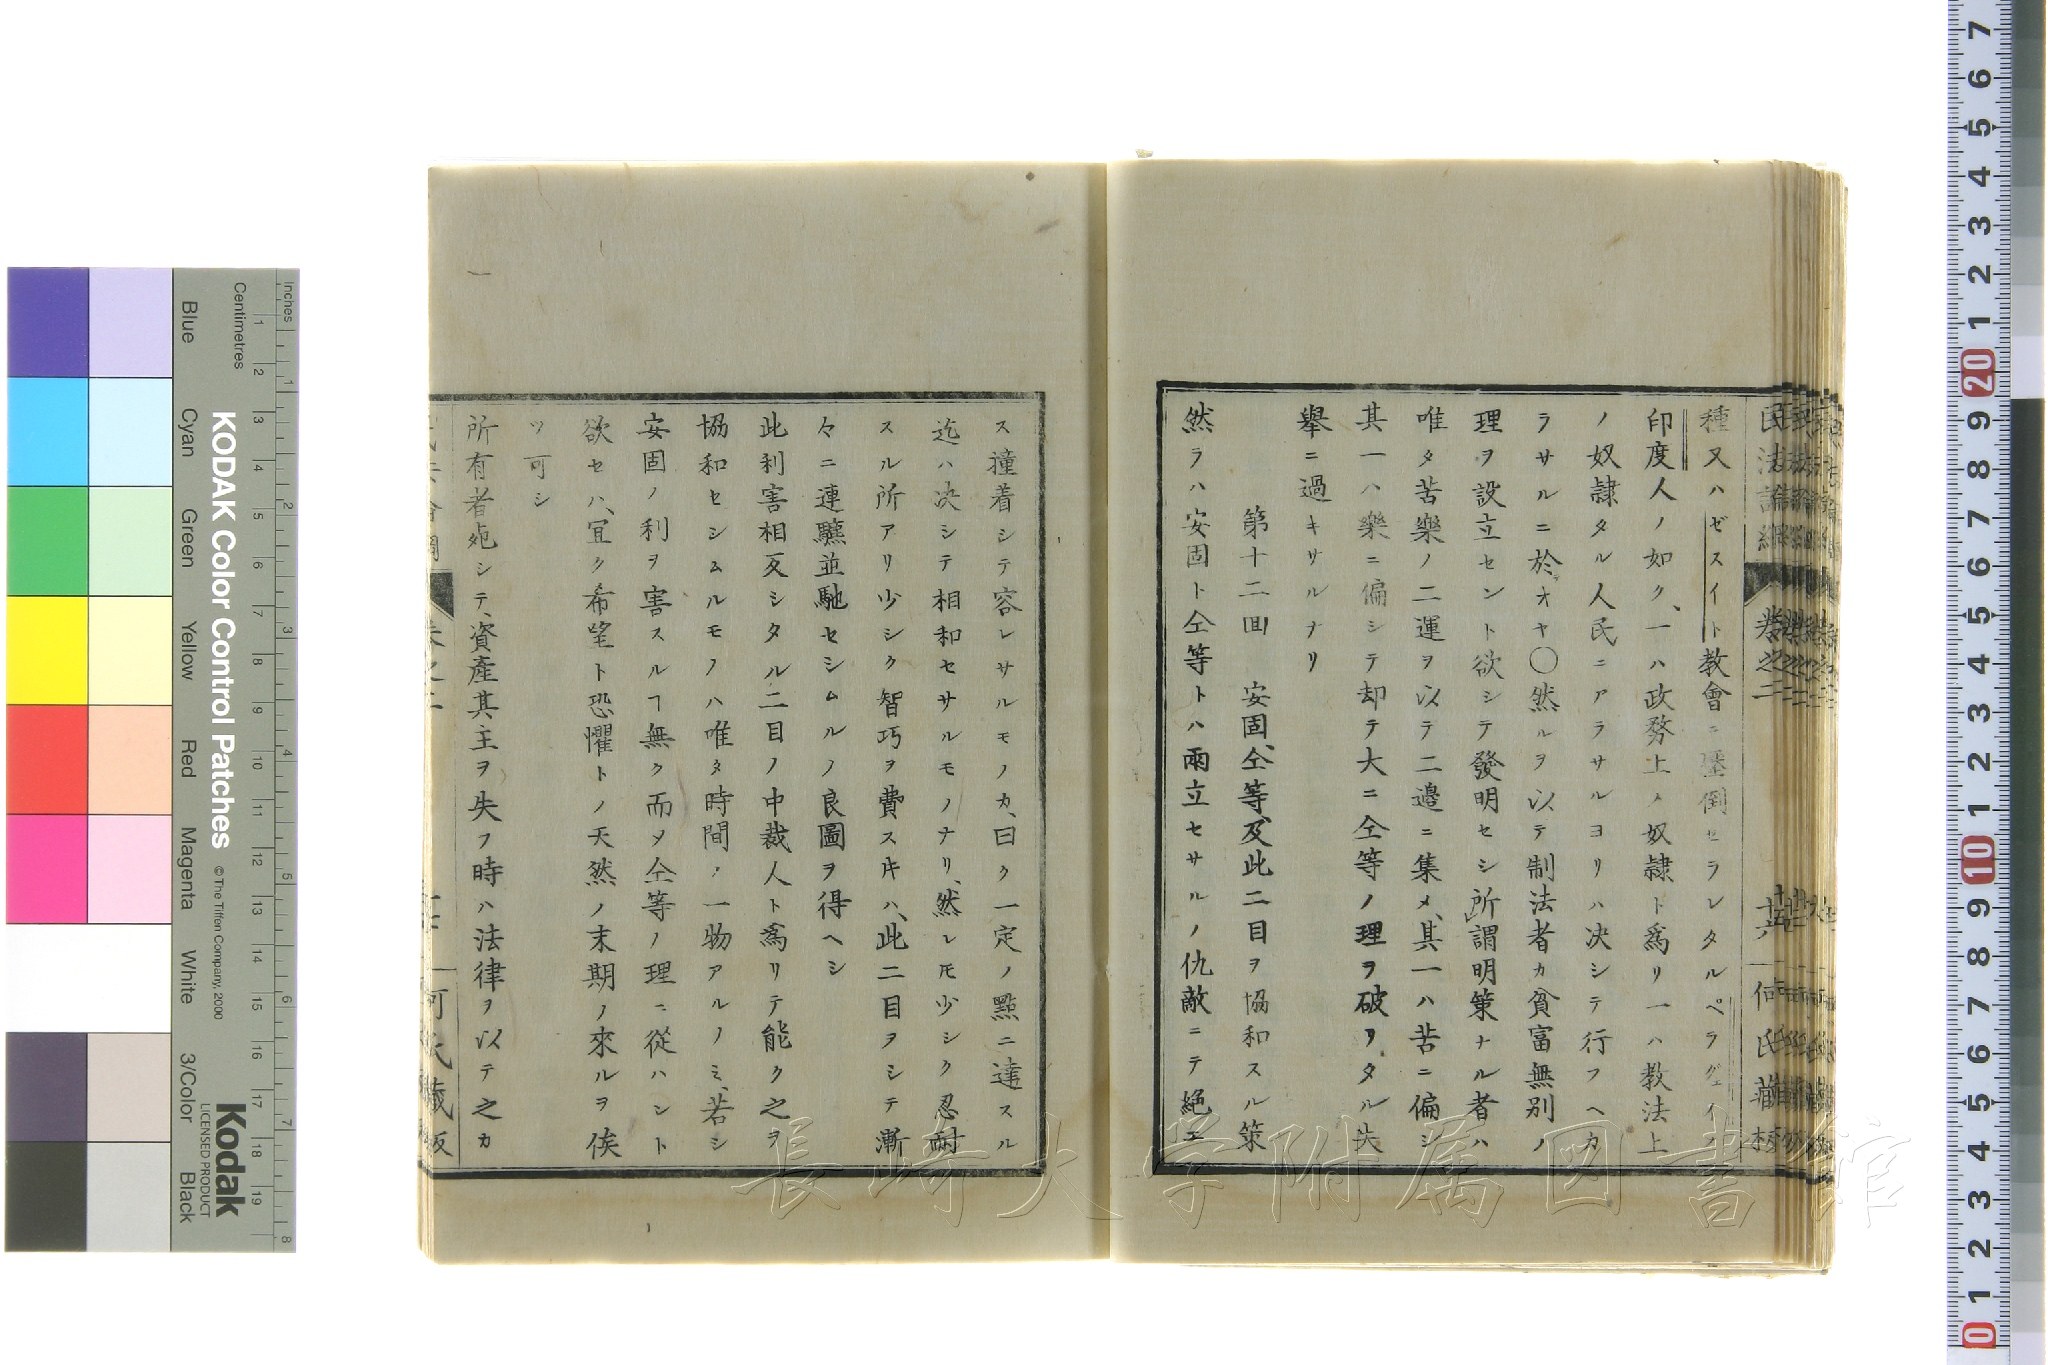 民法論綱　卷之二　十六　何氏藏板
種又ハゼスイト教會ニ壓倒セラレタルペラグェイノ
印度人ノ如ク、一ハ政務上ノ奴隷ト爲リ一ハ教法上
ノ奴隷タル人民ニアラサルヨリハ决シテ行フヘカ
ラサルニ於オヤ〇然ルヲ以テ制法者カ貧富無別ノ
理ヲ設立セント欲シテ發明セシ所謂明策ナル者ハ
唯タ苦樂ノ二運ヲ以テ二邉ニ集メ、其一ハ苦ニ偏シ
其一ハ樂ニ偏シテ却テ大ニ仝等ノ理ヲ破リタル失
擧ニ過キサルナリ
第十二回　安固仝等及此二目ヲ協和スル策
然ラハ安固ト仝等トハ兩立セサルノ仇敵ニテ絶エ
ス撞着シテ容レサルモノカ、曰ク一定ノ點ニ達スル
迄ハ决シテ相和セサルモノナリ、然レ𪜈少シク忍耐
スル所アリ少シク智巧ヲ費ス𪜈ハ、此二目ヲシテ漸
々ニ連驫並馳セシムルノ良圖ヲ得ヘシ
此利害相反シタル二目ノ中裁人ト爲リテ能ク之ヲ
協和セシムルモノハ唯タ時間ノ一物アルノミ、若シ
安固ノ利ヲ害スルヿ無ク而〆仝等ノ理ニ從ハント
欲セハ、宜ク希望ト恐懼トノ天然ノ末期ノ來ルヲ俟
ツ可シ
所有者死シテ、資產其主ヲ失フ時ハ法律ヲ以テ之カ
何氏藏板
KODAK Color Control Patches
© The Tiffen Company, 2000
Kodak
LICENSED PRODUCT
Inches
Centimetres
Blue
Cyan
Green
Yellow
Red
Magenta
White
3/Color
Black
長崎大学附属図書館